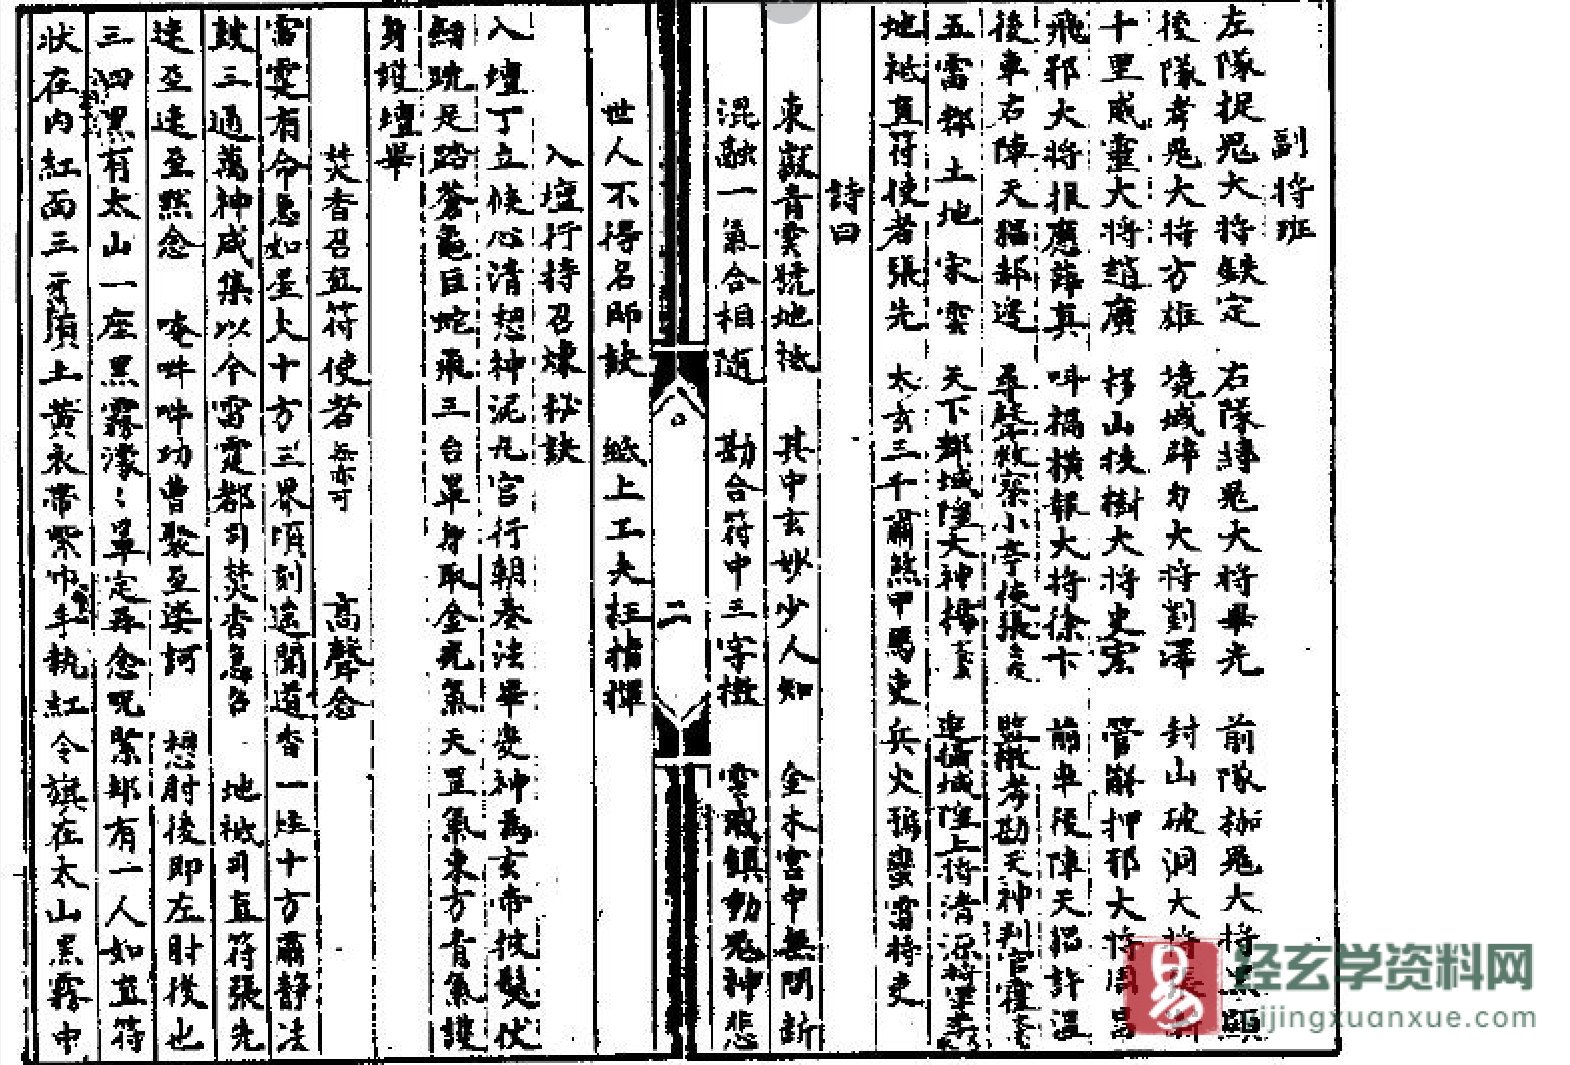 副將班
左隊捉鬼大將鉄定 右隊縛鬼大將畢光 前隊枷鬼大將黑顯
後隊考鬼大將方雄 境域碎力大將劉澤 封山破洞大將張
十里威靈大將趙廣 移山拔樹大將史宏 管解押邪大將周昌
飛邪大將報應薛真 叫楊橫報大將徐卞 前車後陣天猖許溫
後車右陣天猖郝邊 尋 教察小亭侯張 監橄考勘天神判官
五雷都土地宋雲 天下都城隍大神楊 追攝城隍上將清源
地祇直符使者張先 太玄三千甲馬吏兵火獨蠻雷將吏
詩曰
東嶽青雲號地祇 其中玄妙少人知 金木宮中無間斷
混融一氣合相隨 勘合符中三字檄 雲城鎮動鬼神悲
二
世人不得名師訣 紙上工夫枉指揮
入壇行持召煉秘訣
入壇丁立候心清想神泥丸宮行朝奏法畢變神為玄帝披髮伏
跣足踏蒼龜巨蛇飛三台罩身取金光氣天罡氣東方青氣護
身護壇畢
焚香召直符使者 高聲念
雷霆有命急如星火十方三界頃刻遙聞道香一炷十方肅靜法
鼓三通萬神咸集以今雷霆都司焚香急召 地祇司直符張先
速至速至默念 唵吽吽功曹聚至娑訶 想肘後即左肘後也
三四黑有太山一座黑霧濛濛罩定再念呪緊却有一人如直符
狀在內紅面三牙鬚上黃衣帶紫巾手執紅令旗在太山黑霧中
易
经玄学资料网
yijingxuanxue.com